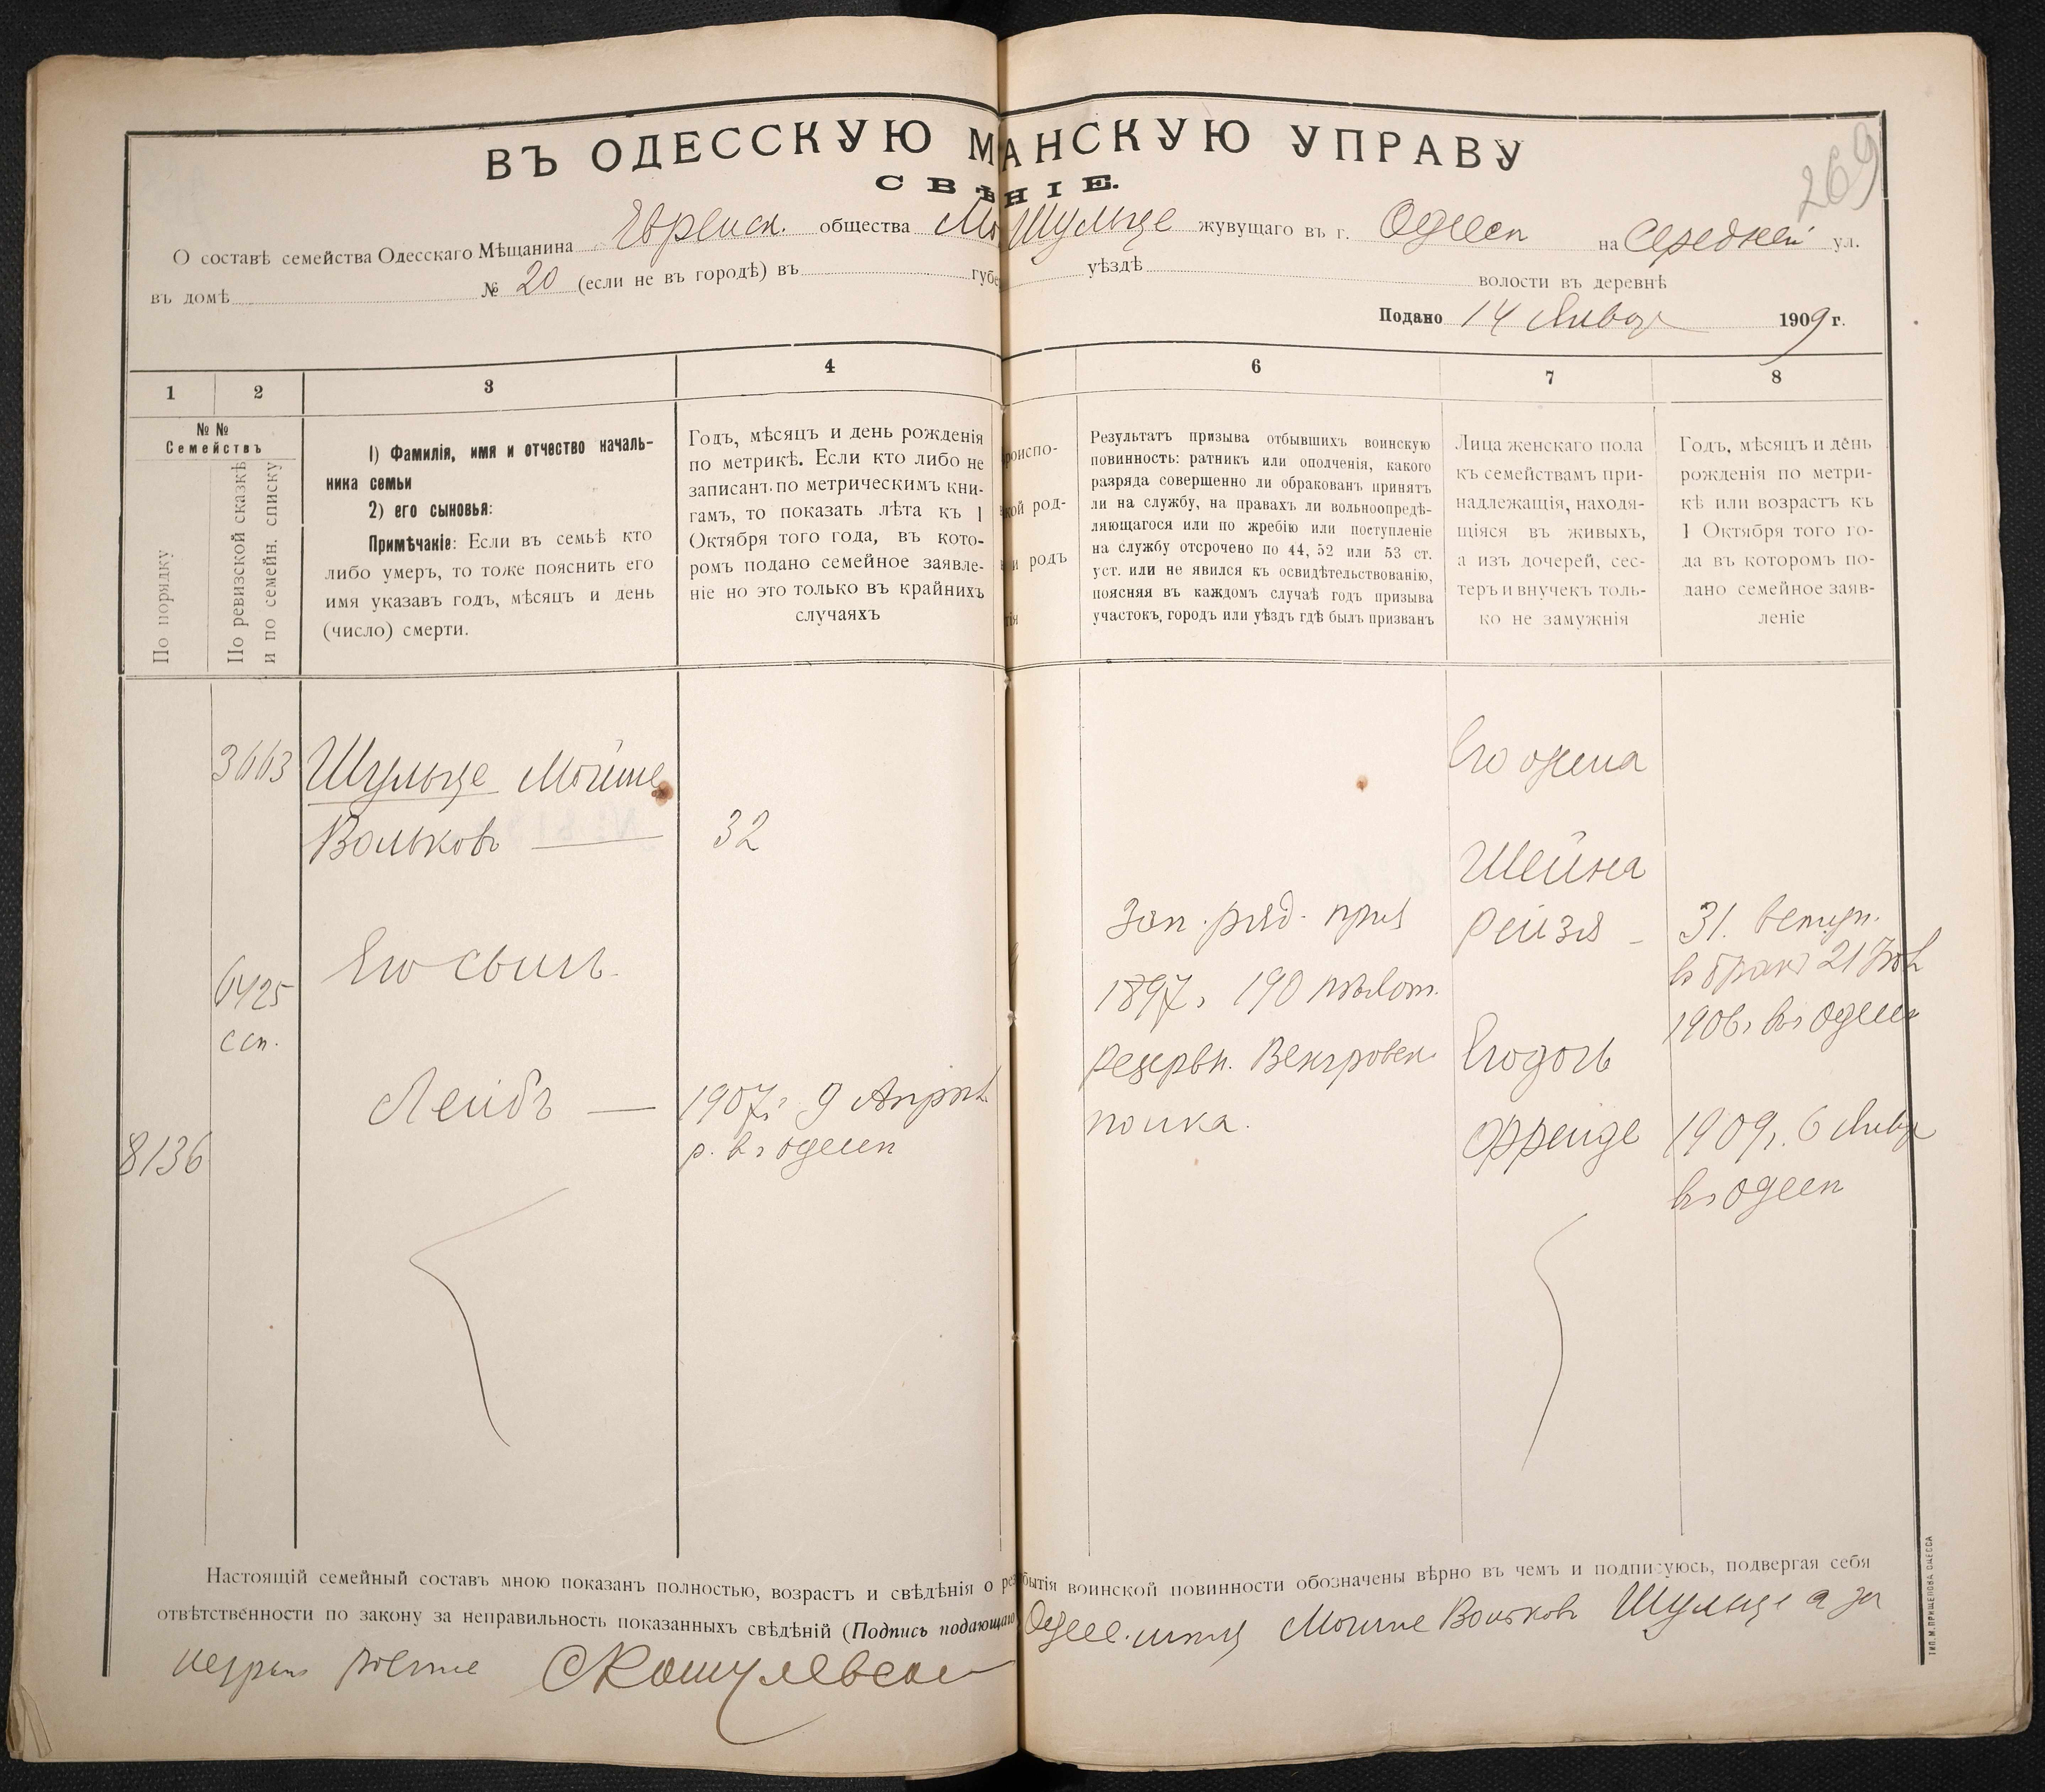 269
ВЪ ОДЕССКУЮ М АНСКУЮ УПРАВУ
СВѢ НІЕ.
О составѣ семейства Одесскаго Мѣщанина Еврейск. общества Мо Шульце жувущаго въ г. Одессѣ на Средней ул.
въ домѣ № 20 (если не въ городѣ) въ губе уѣздѣ волости въ деревнѣ
Подано 14 Января 1909 г.
1 2 3 4 6 7 8
№ №
Семействъ
По порядку
По ревизской сказкѣ
и по семейн. списку
1) Фамилія, имя и отчество началь-
ника семьи
2) его сыновья:
Примѣчаніе: Если въ семьѣ кто
либо умеръ, то тоже пояснить его
имя указавъ годъ, мѣсяцъ и день
(число) смерти.
Годъ, мѣсяцъ и день рожденія
по метрикѣ. Если кто либо не
записанъ по метрическимъ кни-
гамъ, то показать лѣта къ 1
Октября того года, въ кото-
ромъ подано семейное заявле-
ніе но это только въ крайнихъ
случаяхъ
роиспо-
кой род-
и родъ
тія
Результатъ призыва отбывшихъ воинскую
повинность: ратникъ или ополченія, какого
разряда совершенно ли обракованъ принятъ
ли на службу, на правахъ ли вольноопредѣ-
ляющагося или по жребію или поступленіе
на службу отсрочено по 44, 52 или 53 ст.
уст. или не явился къ освидѣтельствованію,
поясняя въ каждомъ случаѣ годъ призыва
участокъ, городъ или уѣздъ гдѣ былъ призванъ
Лица женскаго пола
къ семействамъ при-
надлежащія, находя-
щіяся въ живыхъ,
а изъ дочерей, сес-
теръ и внучекъ толь-
ко не замужнія
Годъ, мѣсяцъ и день
рожденія по метри-
кѣ или возрастъ къ
1 Октября того го-
да въ которомъ по-
дано семейное заяв-
леніе
3663
6425
ссп.
8136
Шульце Мойше
Вольковъ —
Его сынъ
Лейбъ —
32
1907 г. 9 Апрѣл
р. въ Одессѣ
Зап. ряд. приз
1897 г. 190 пѣхот.
резервн. Венгровск
полка.
Его жена
Шейна
Рейзя -
Его дочь
Фрейде
31. вступ.
въ бракъ 21
1906 г. въ Одессѣ
1909 г. 6 Янвр
въ Одессѣ
Настоящій семейный составъ мною показанъ полностью, возрастъ и свѣдѣнія о рез бытія воинской повинности обозначены вѣрно въ чемъ и подписуюсь, подвергая себя
отвѣтственности по закону за неправильность показанныхъ свѣдѣній (Подпись подающаго Одесс. мѣщ Мойше Вольковъ Шульце а за
неграм
ТИП. М. ПРИЩЕПОВА ОДЕССА